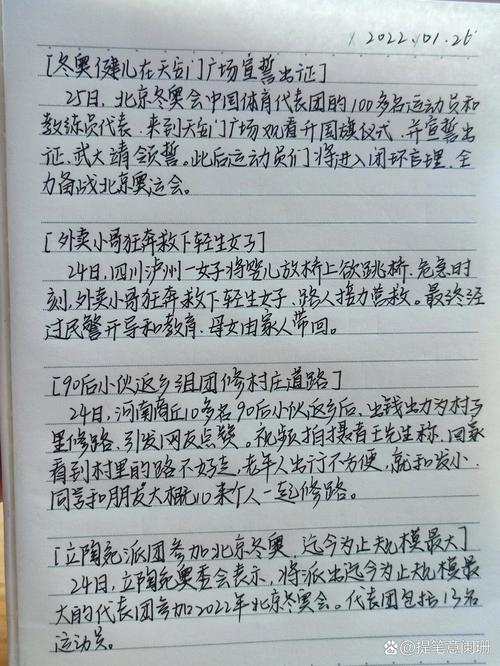 2022.01.26
[冬奥健儿在天安门广场宣誓出征]
25日，北京冬奥会中国体育代表团的100多名运动员和
教练员代表，来到天安门广场观看升国旗仪式，并宣誓出
征，武大靖领誓。此后运动员们将进入闭环管理，全
力备战北京奥运会。
[外卖小哥狂奔救下轻生女子]
24日，四川泸州一女子将婴儿放桥上欲跳桥，危急时
刻，外卖小哥狂奔救下轻生女子，路人接力营救。最终经
过民警开导和教育，母女由家人带回。
[90后小伙返乡组团修村庄道路]
24日，河南商丘10多名90后小伙返乡后，出钱出力为村子
里修路，引发网友点赞。视频拍摄者王先生称，回家
看到村里的路不好走，老年人出行不方便，就和发小、
同学和朋友大概10来个人一起修路。
[立陶宛派团参加北京冬奥，迄今为止规模最大]
24日，立陶宛奥委会表示，将派出迄今为止规模最
大的代表团参加2022年北京冬奥会。代表团包括13名
运动员。
头条 @提笔意阑珊